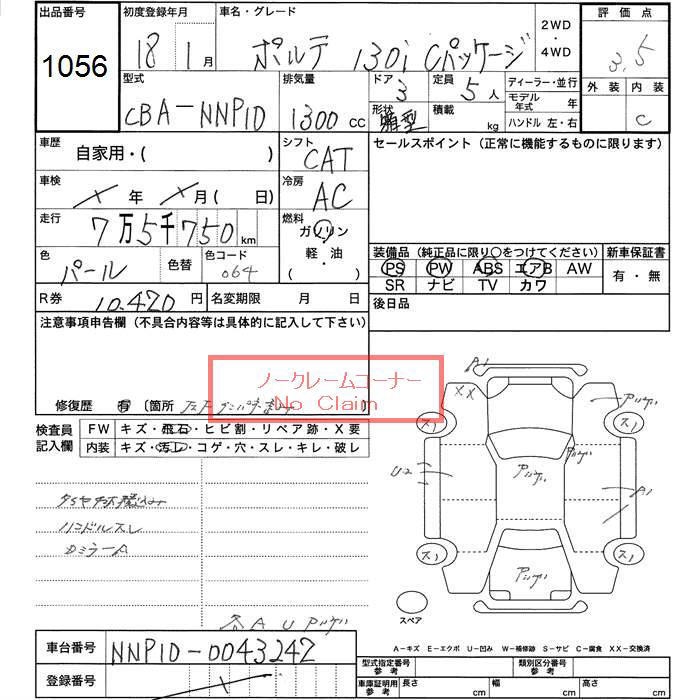 出品番号 初度登録年月 車名・グレード 2WD・4WD 評価点
1056 18年1月 ポルテ 130i Cパッケージ 3.5
型式 排気量 ドア 3 定員 5人 ディーラー・並行 外装 内装
CBA-NNP10 1300cc 形状 積載 kg モデル年式 年 C
ハンドル 左・右
車歴 自家用・( ) シフト CAT セールスポイント (正常に機能するものに限ります)
車検 X年 X月( 日) 冷房 AC
走行 7万5千750km 燃料 ガソリン
軽・油
( )
色 パール 色替 色コード 064 装備品 (純正品に限り○をつけてください) 新車保証書
PS PW ABS エアB AW 有・無
SR ナビ TV カワ
R券 10,470円 名変期限 月 日 後日品
注意事項申告欄 (不具合内容等は具体的に記入して下さい)
ノークレームコーナー
No Claim
修復歴 有 〔箇所
検査員記入欄 FW キズ・飛石・ヒビ割・リペア跡・X要
内装 キズ・汚レ・コゲ・穴・スレ・キレ・破レ
ハンドルスレ
DミラーA
各 A U
A1
XX
スレ
スレ
U2
A1
スレ
スレ
スペア
A-キズ E-エクボ U-凹み W-補修跡 S-サビ C-腐食 XX-交換済
車台番号 NNP10-0043242 型式指定番号 参考 類別区分番号 参考
登録番号 車庫証明用 参考 長さ cm 幅 cm 高さ cm